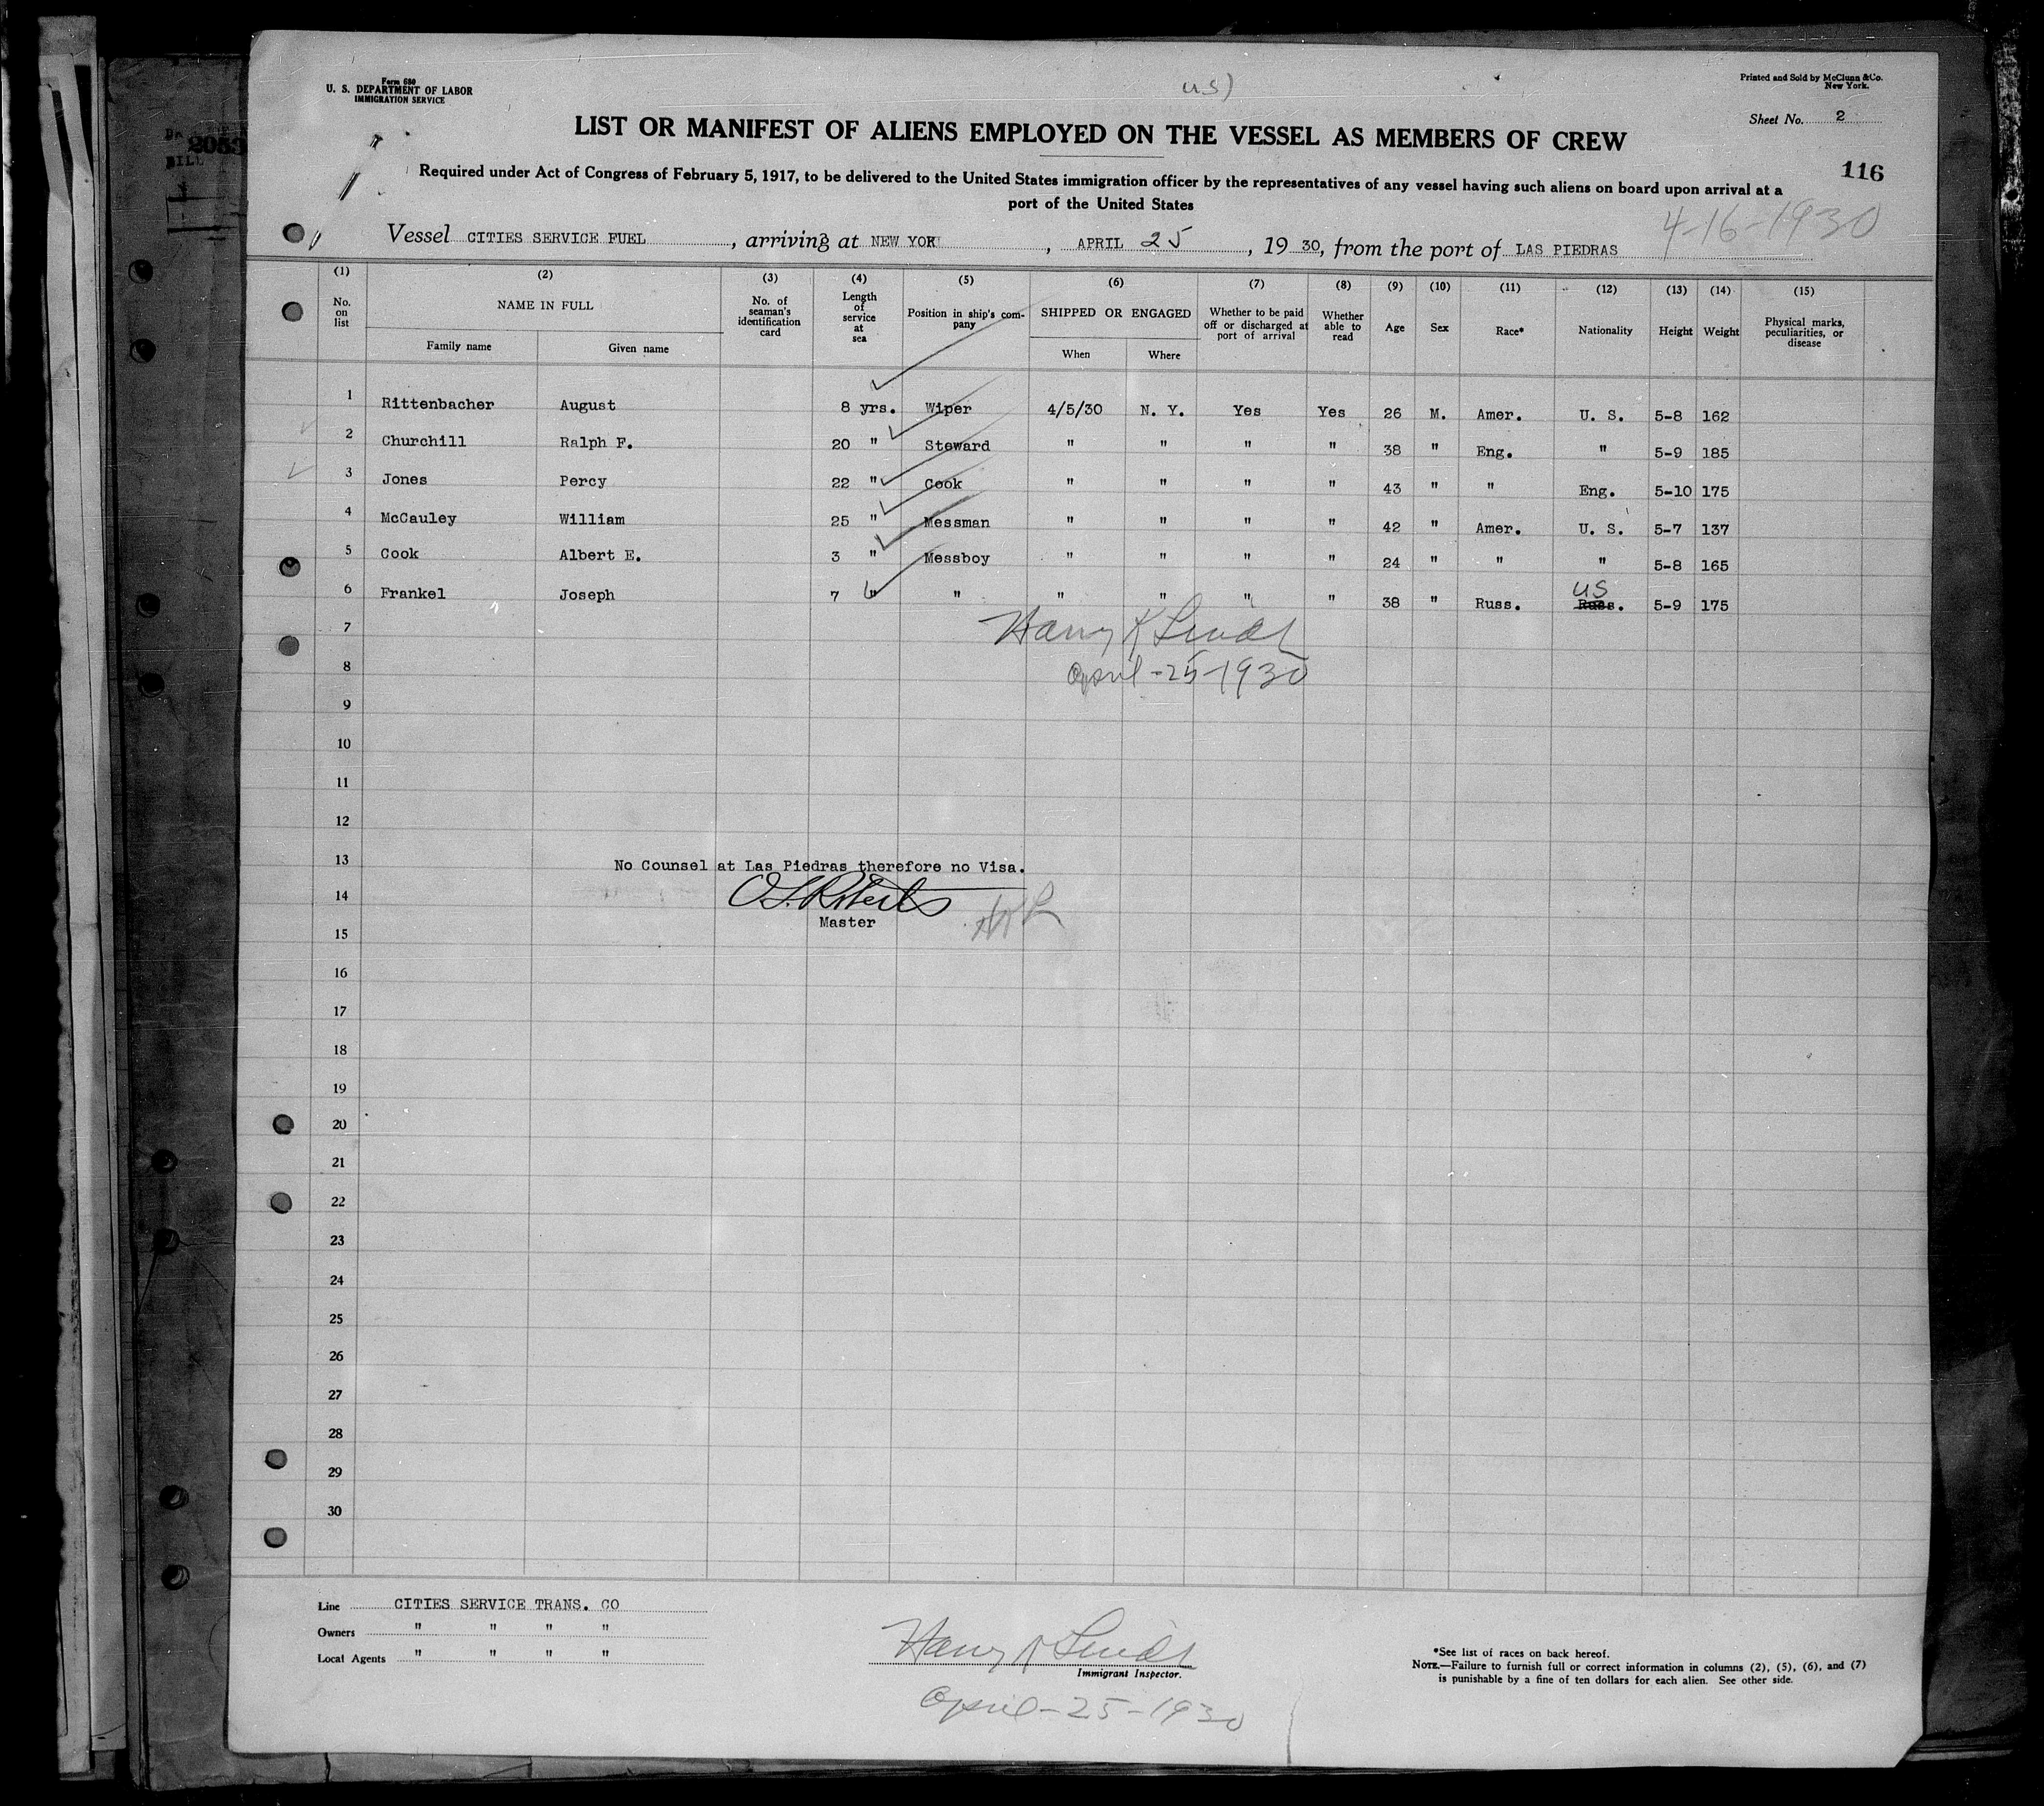 Form 680
U. S. DEPARTMENT OF LABOR
IMMIGRATION SERVICE
US)
Printed and Sold by McClunn & Co.
New York.
Sheet No. 2
LIST OR MANIFEST OF ALIENS EMPLOYED ON THE VESSEL AS MEMBERS OF CREW
116
Required under Act of Congress of February 5, 1917, to be delivered to the United States immigration officer by the representatives of any vessel having such aliens on board upon arrival at a
port of the United States
4-16-1930
Vessel CITIES SERVICE FUEL, arriving at NEW YORK, APRIL 25, 19 30, from the port of LAS PIEDRAS
(1) (2) (3) (4) (5) (6) (7) (8) (9) (10) (11) (12) (13) (14) (15)
No. on list NAME IN FULL Family name Given name No. of seaman's identification card Length of service at sea Position in ship's company SHIPPED OR ENGAGED When Where Whether to be paid off or discharged at port of arrival Whether able to read Age Sex Race* Nationality Height Weight Physical marks, peculiarities, or disease
1 Rittenbacher August 8 yrs. Wiper 4/5/30 N. Y. Yes Yes 26 M. Amer. U. S. 5-8 162
2 Churchill Ralph F. 20 " Steward " " " " 38 " Eng. " 5-9 185
3 Jones Percy 22 " Cook " " " " 43 " " Eng. 5-10 175
4 McCauley William 25 " Messman " " " " 42 " Amer. U. S. 5-7 137
5 Cook Albert E. 3 " Messboy " " " " 24 " " " 5-8 165
6 Frankel Joseph 7 " " " " " " 38 " Russ. Russ. US 5-9 175
7
Harry K Lindt
8
April-25-1930
9
10
11
12
13
No Counsel at Las Piedras therefore no Visa.
14
O.L. Roberts
Master
15
16
17
18
19
20
21
22
23
24
25
26
27
28
29
30
Line CITIES SERVICE TRANS. CO
Owners " " " "
Local Agents " " " "
Harry K Lindt
Immigrant Inspector.
April-25-1930
*See list of races on back hereof.
NOTE.—Failure to furnish full or correct information in columns (2), (5), (6), and (7)
is punishable by a fine of ten dollars for each alien. See other side.